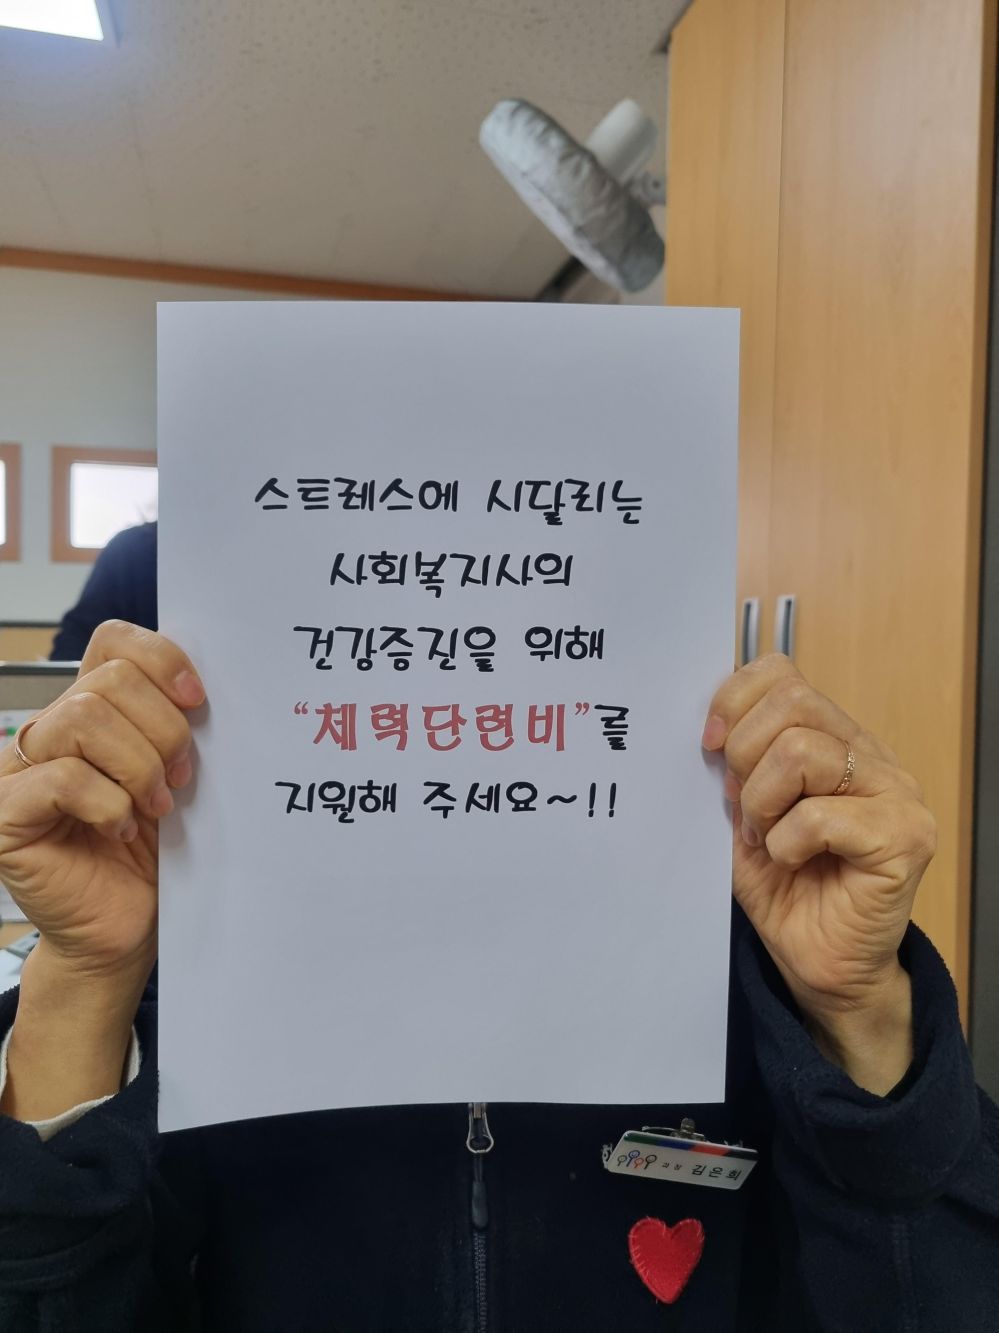 스트레스에 시달리는
사회복지사의
건강증진을 위해
“체력단련비”를
지원해 주세요~!!
과장 김은희